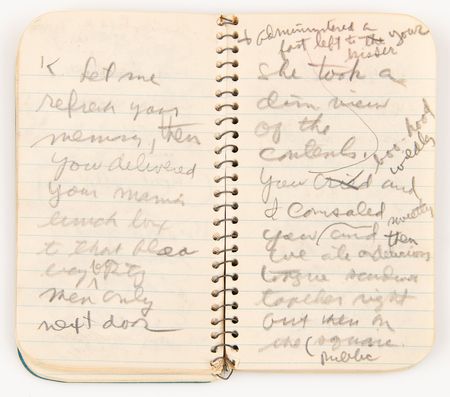 Let me
refresh your
memory, then
you delivered
your mama
lunch box
to that
men only
next door
+ administered a
fast left to the your
She took a
dim view
of the
contents,
boo-hood
you cried and
I consoled
sweetly
you and then
we ate a delicious
tongue
together right
out then on
the square.
public